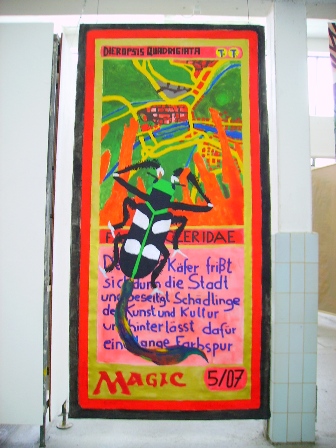 DICROPSIS QUADRIGIATA T T
ERIDAE
Käfer frißt
sich durch die Stadt
und beseitigt Schädlinge
der Kunst und Kultur
und hinterlässt dafür
eine lange Farbspur
MAGIC 5/07